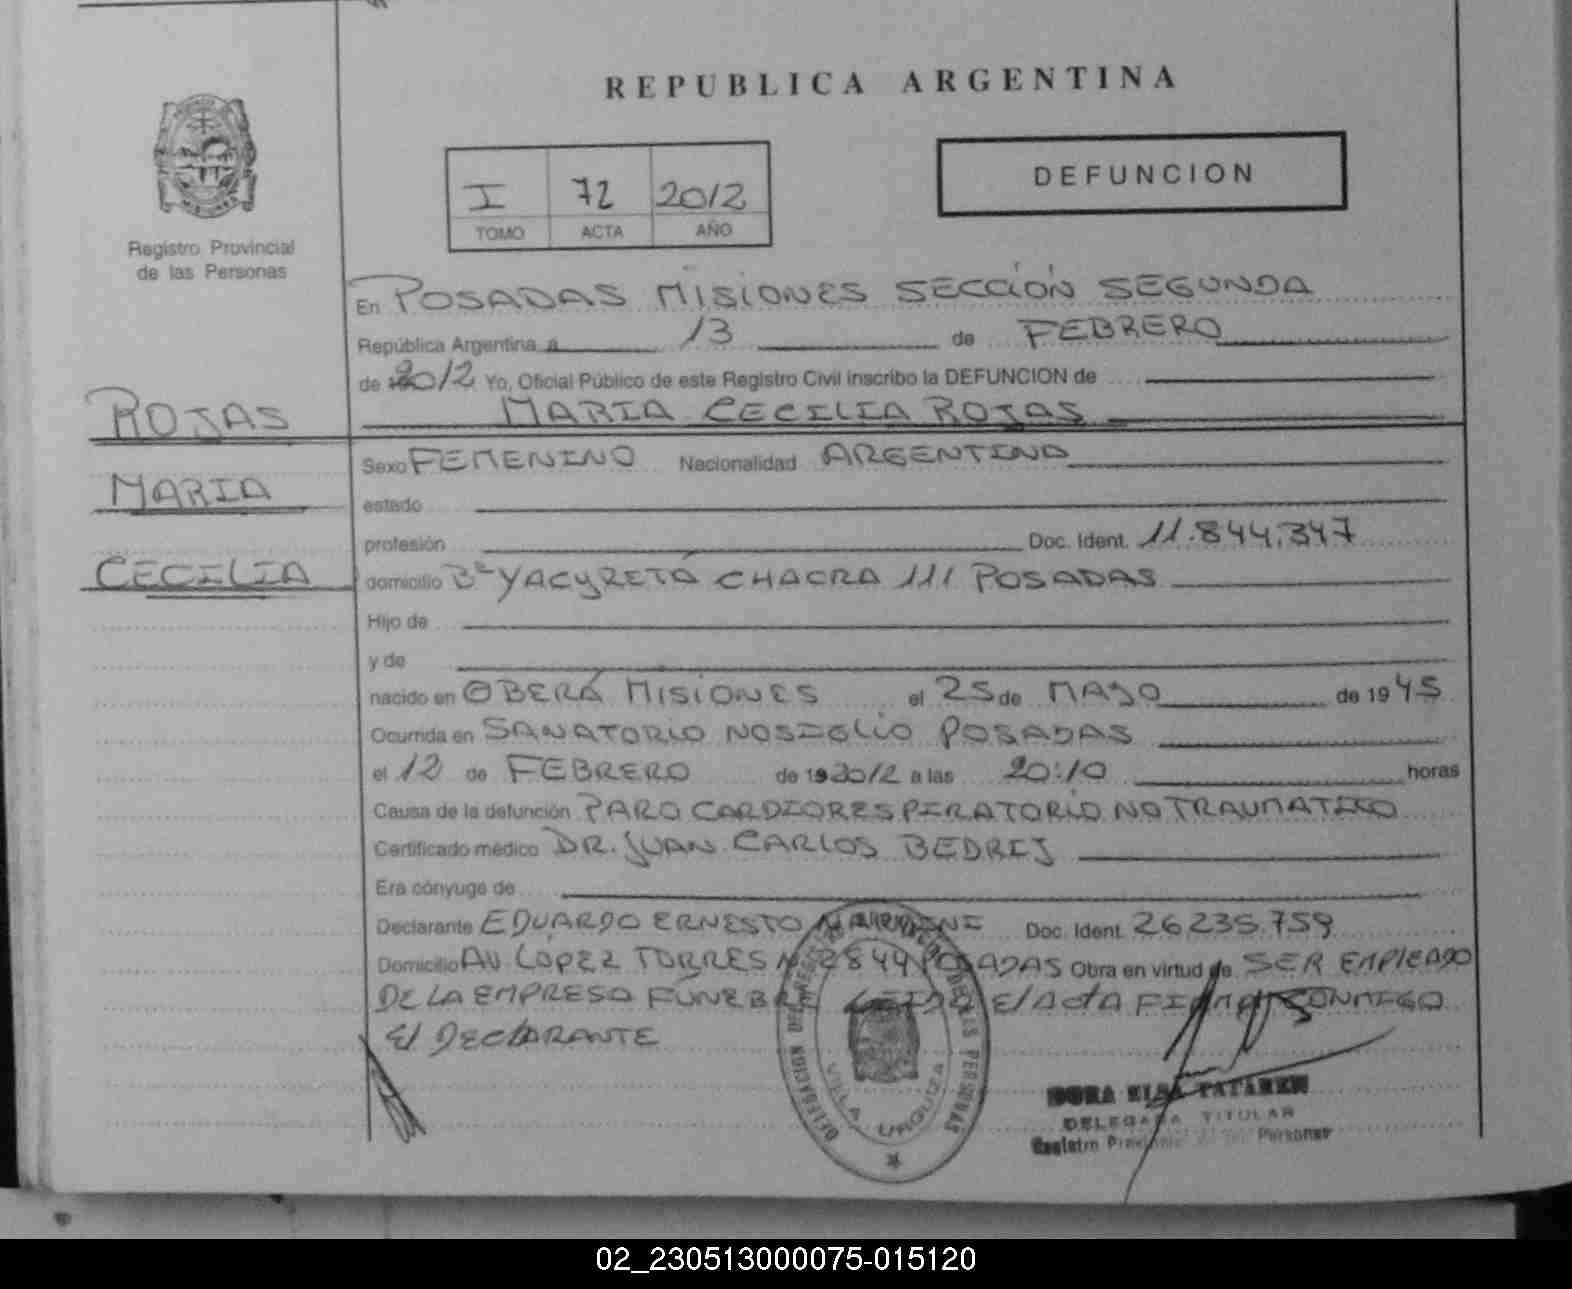 REPUBLICA ARGENTINA
DEFUNCION
I 72 2012
TOMO ACTA AÑO
Registro Provincial
de las Personas
En POSADAS MISIONES SECCIÓN SEGUNDA
República Argentina a 13 de FEBRERO
de 2012 Yo, Oficial Público de este Registro Civil inscribo la DEFUNCION de
MARIA CECILIA ROJAS
ROJAS
MARIA
CECILIA
Sexo FEMENINO Nacionalidad ARGENTINA
estado
profesión Doc. Ident. 11.844.347
domicilio Bº YACYRETÁ CHACRA 111 POSADAS
Hijo de
y de
nacido en OBERÁ MISIONES el 25 de MAYO de 1945
Ocurrida en SANATORIO NOSIGLIO POSADAS
el 12 de FEBRERO de 19 2012 a las 20:10 horas
Causa de la defunción PARO CARDIORESPIRATORIO NO TRAUMATICO
Certificado médico DR. JUAN CARLOS BEDRIJ
Era cónyuge de
Declarante EDUARDO ERNESTO Doc. Ident. 26235.759
Domicilio AV. LÓPEZ TORRES Nº 2844 POSADAS Obra en virtud de SER EMPLEADO
DE LA EMPRESA FÚNEBRE LEIDA El Acta FIRMA CONMIGO
El DECLARANTE
DELEGACION DEL REGISTRO PROVINCIAL DE LAS PERSONAS
VILLA URQUIZA
DORA ELSA TATAREN
DELEGADA TITULAR
Registro Provincial de las Personas
02_230513000075-015120